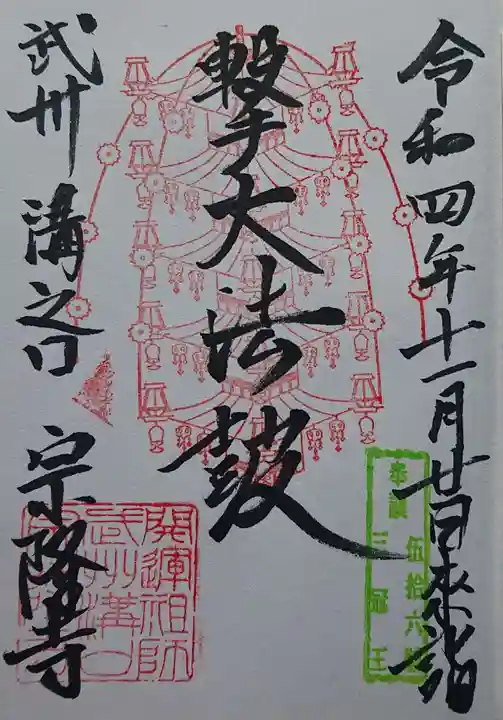 令和四年十一月廿日来詣
撃大法鼓
武州溝之口 宗隆寺
開運祖師
武州溝口
奉讀 伍拾六
三冠王